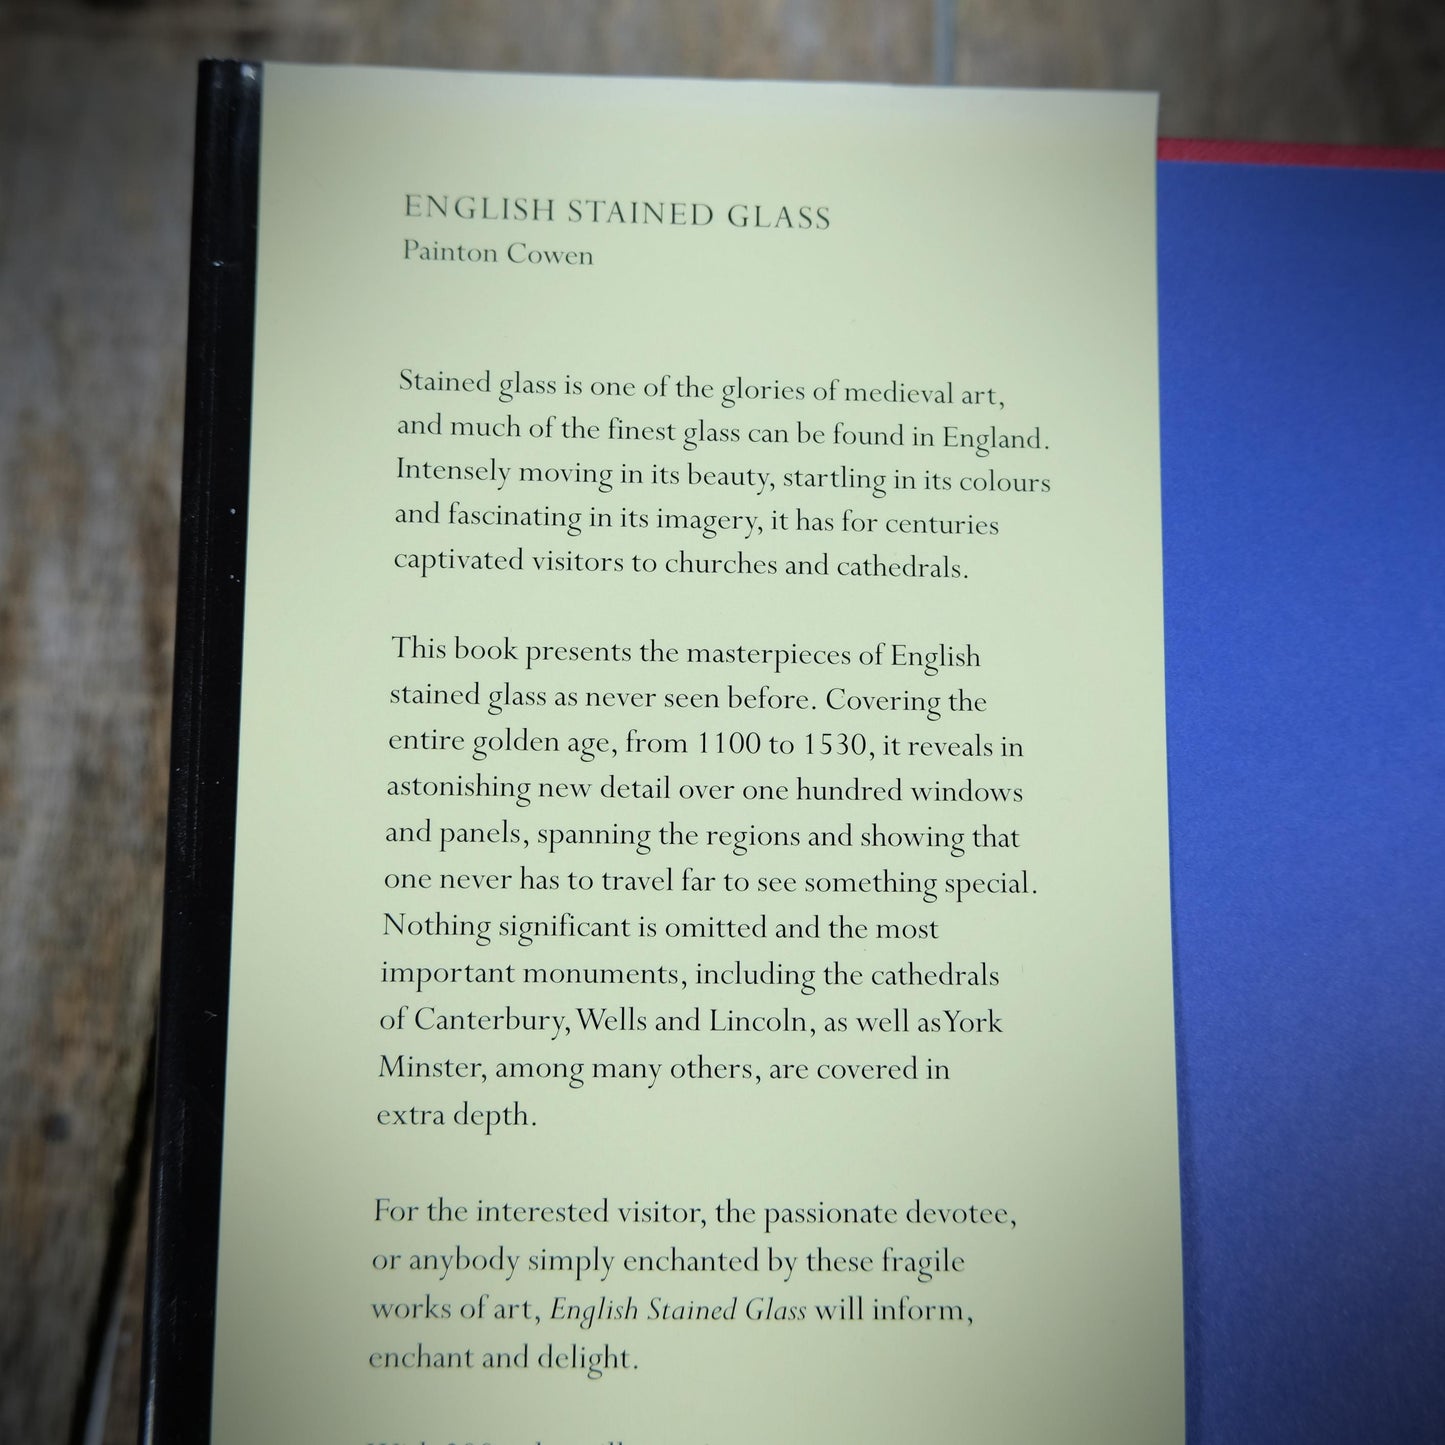 ENGLISH STAINED GLASS
Painton Cowen
Stained glass is one of the glories of medieval art,
and much of the finest glass can be found in England.
Intensely moving in its beauty, startling in its colours
and fascinating in its imagery, it has for centuries
captivated visitors to churches and cathedrals.
This book presents the masterpieces of English
stained glass as never seen before. Covering the
entire golden age, from 1100 to 1530, it reveals in
astonishing new detail over one hundred windows
and panels, spanning the regions and showing that
one never has to travel far to see something special.
Nothing significant is omitted and the most
important monuments, including the cathedrals
of Canterbury, Wells and Lincoln, as well as York
Minster, among many others, are covered in
extra depth.
For the interested visitor, the passionate devotee,
or anybody simply enchanted by these fragile
works of art, English Stained Glass will inform,
enchant and delight.